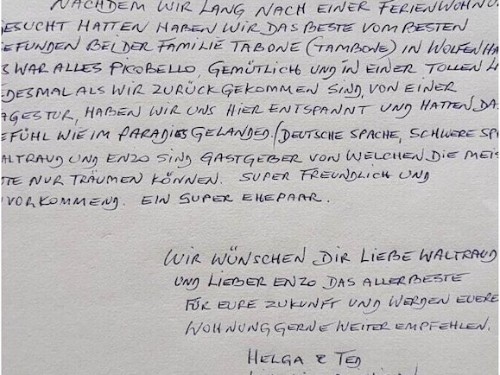 NACHDEM WIR LANG NACH EINER FERIENWOHNU
ESUCHT HATTEN HABEN WIR DAS BESTE VOM BESTEN
EFUNDEN BEI DER FAMILIE TABONE (TAMBONE) IN WOLFENHA
S WAR ALLES PICOBELLO, GEMÜTLICH UND IN EINER TOLLEN
EDESMAL ALS WIR ZURÜCK GEKOMMEN SIND, VON EINER
AGESTUR, HABEN WIR UNS HIER ENTSPANNT UND HATTEN DA
EFÜHL WIE IM PARADIES GELANDED. (DEUTSCHE SPACHE, SCHWERE SP
ALTRAUD UND ENZO SIND GASTGEBER VON WELCHEN DIE MEIS
TE NUR TRÄUMEN KÖNNEN. SUPER FREUNDLICH UND
VORKOMMEND. EIN SUPER EHEPAAR.
WIR WÜNSCHEN DIR LIEBE WALTRAUD
UND LIEBER ENZO DAS ALLERBESTE
FÜR EURE ZUKUNFT UND WERDEN EUERE
WOHNUNG GERNE WEITER EMPFEHLEN.
HELGA & TED